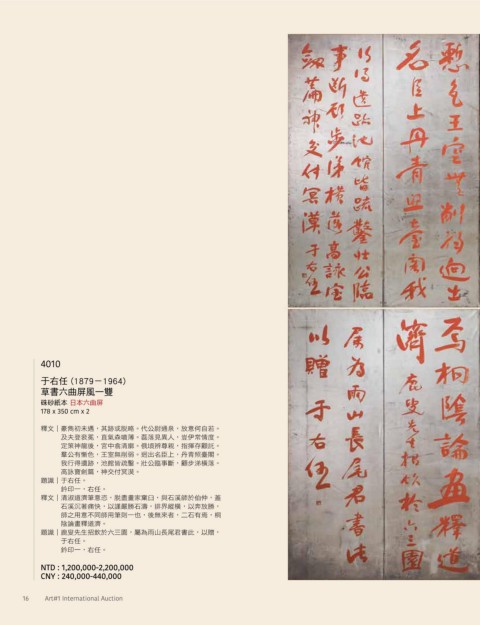 4010
于右任（1879－1964）
草書六曲屏風一雙
硃砂紙本 日本六曲屏
178 x 350 cm x 2
釋文｜豪雋初未遇，其跡或脫略。代公尉通泉，放意何自若。
及夫登袞冕，直氣森噴薄。磊落見異人，豈伊常情度。
定策神龍後，宮中翕清廓。俄頃辨尊親，指揮存顧託。
羣公有慚色，王室無削弱。迥出名臣上，丹青照臺閣。
我行得遺跡，池館皆疏鑿。壯公臨事斷，顧步涕橫落。
高詠寶劍篇，神交付冥漠。
題識｜于右任。
鈐印一．右任。
釋文｜清湘道濟筆意恣，脫盡畫家窠臼，與石溪師於伯仲，蓋
石溪沉著痛快，以謹嚴勝石濤，排昇縱橫，以奔放勝，
師之用意不同師用筆則一也，後無來者，二石有焉，桐
陰論畫釋道濟。
題識｜鹿叟先生招飲於六三園，屬為雨山長尾君書此，以贈，
于右任。
鈐印一．右任。
NTD : 1,200,000-2,200,000
CNY : 240,000-440,000
慙色王室無削弱迥出
名臣上丹青照臺閣我
行得遺跡池館皆疏鑿壯公臨
事斷顧步涕橫落高詠寶
劍篇神交付冥漠 于右任
焉桐陰論畫釋道
濟 鹿叟先生招飲於六三園
屬為雨山長尾君書
以贈 于右任
16 Art#1 International Auction